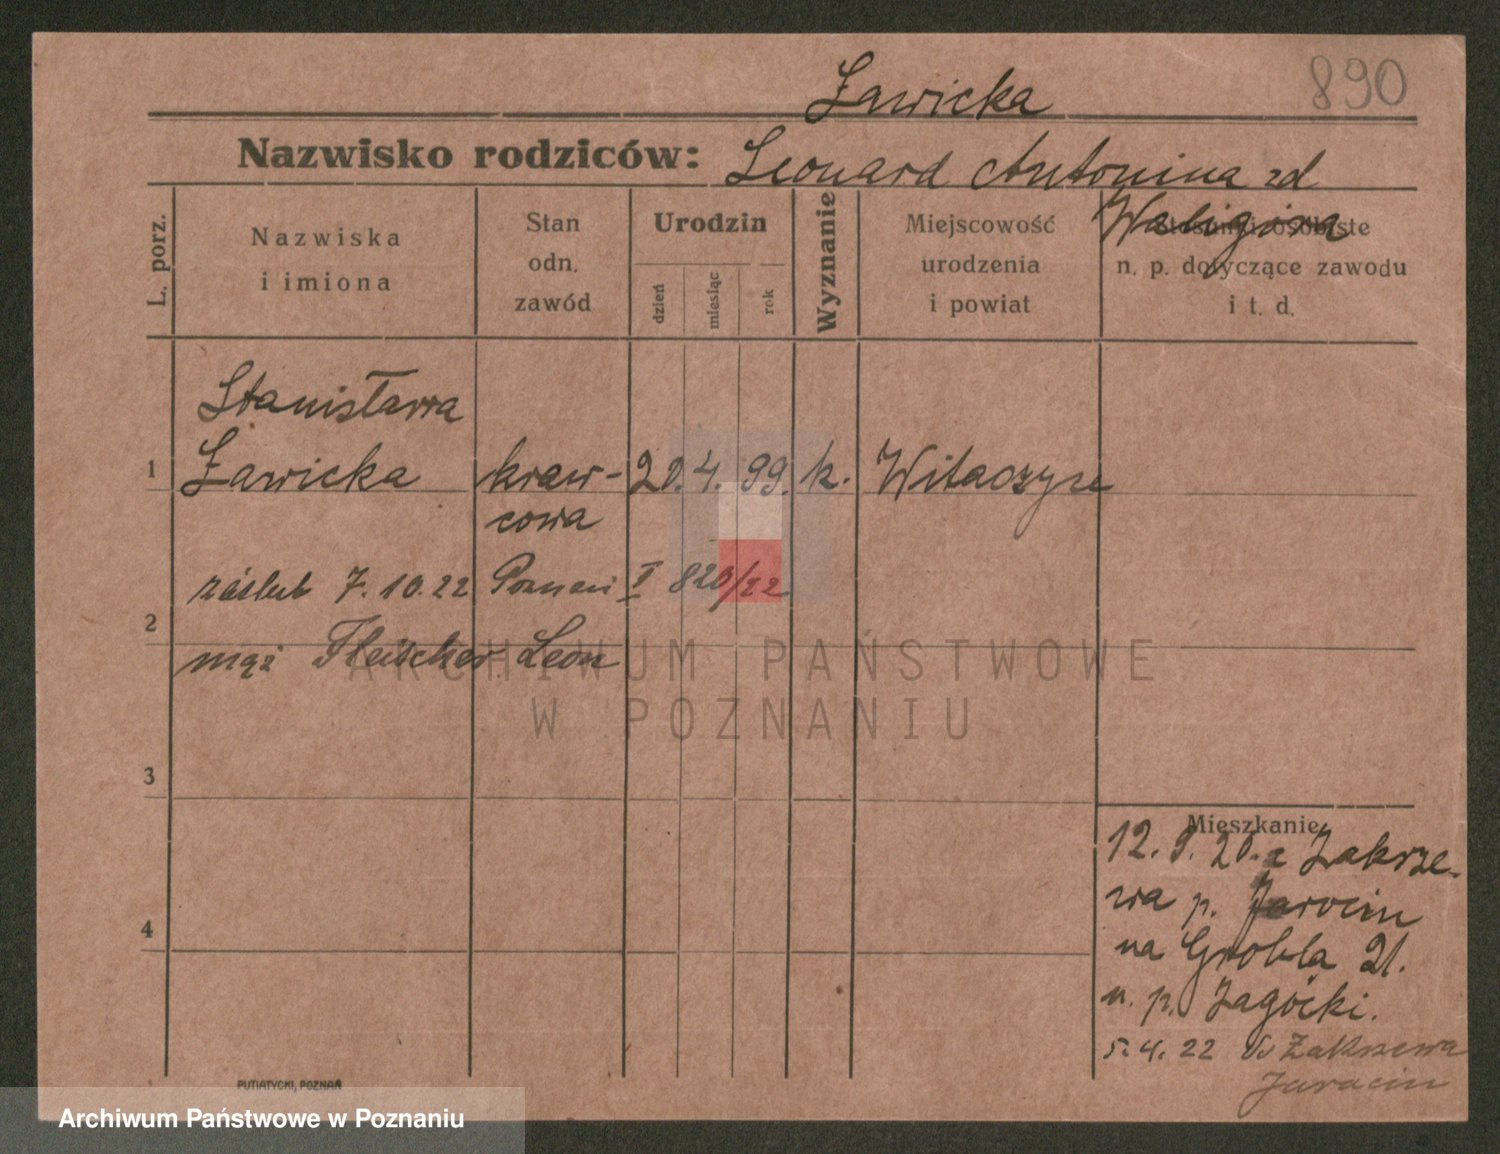 890
Żawicka
Nazwisko rodziców: Leonard Antonina zd
Waligóra
L. porz.
Nazwiska
i imiona
Stan
odn.
zawód
Urodzin
dzień
miesiąc
rok
Wyznanie
Miejscowość
urodzenia
i powiat
Stosunki osobiste
n. p. dotyczące zawodu
i t. d.
Stanisława
1 Żawicka kraw- 20. 4. 99. k. Witaszyce
cowa
záslub 7. 10. 22 Poznań I 820/22
2
mąż Fleischer Leon
ARCHIWUM PAŃSTWOWE
W POZNANIU
3
4
Mieszkanie
12. 9. 20. z Zakrze-
wa p. Jarocin
na Grobla 21.
u. p. Zagócki.
5. 4. 22 do Zakrzewa
Jarocin
PUTIATYCKI, POZNAŃ
Archiwum Państwowe w Poznaniu